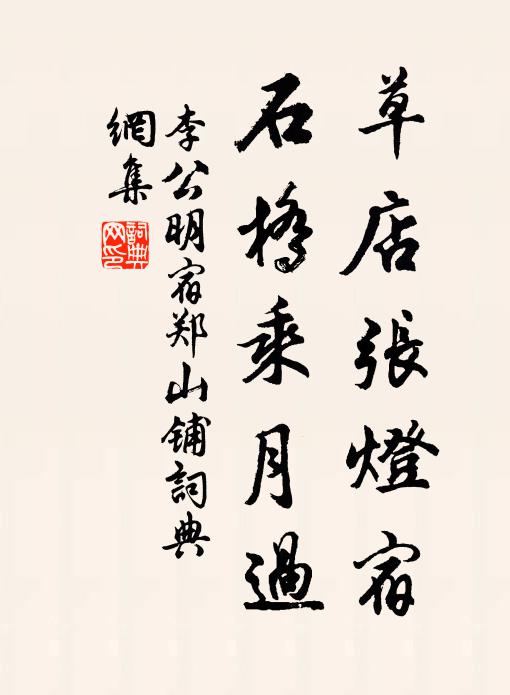 草店張燈宿
石橋乘月過
李公明宿郑山铺詞典
網集
詞典
网印